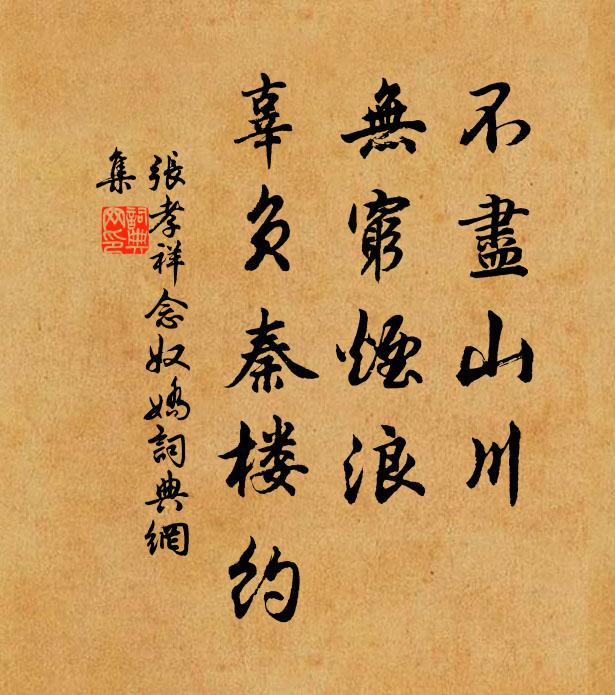 不盡山川
無窮煙浪
辜負秦楼約
張孝祥念奴嬌詞典網
集
詞典
网印